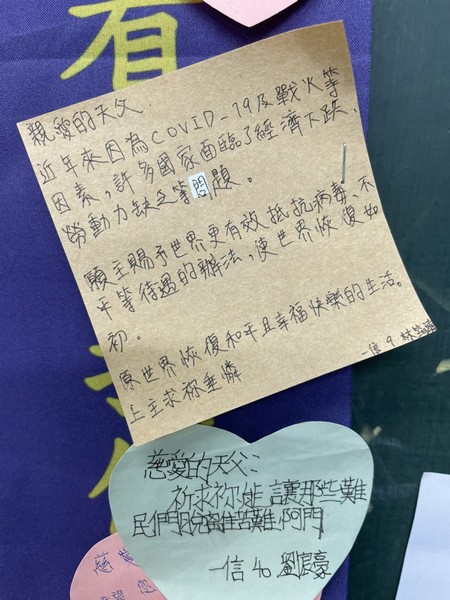 有
親愛的天父.
近年來因為COVID-19及戰火等
因素,許多國家面臨了經濟下跌、
勞動力缺乏等問題。
願主賜予世界更有效抵抗病毒、不
平等待遇的辦法,使世界恢復如
初。
原世界恢復和平且幸福快樂的生活。
上主求祢垂憐
一信 9 林
慈愛的天父:
祈求祢能讓那些難
民們脫離苦難,阿門
一信 40 劉宸豪
慈